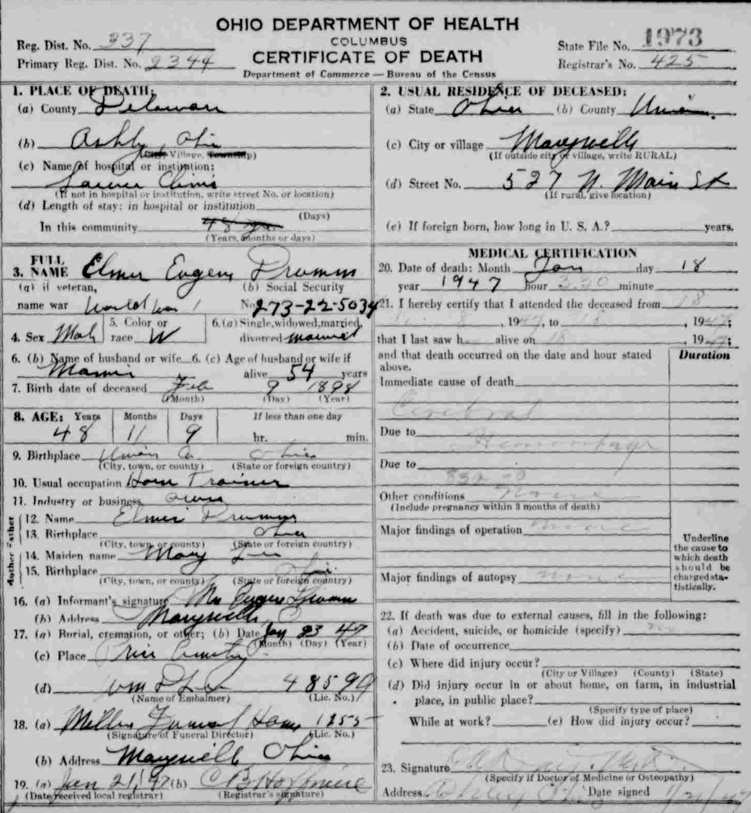 OHIO DEPARTMENT OF HEALTH
COLUMBUS
CERTIFICATE OF DEATH
Department of Commerce — Bureau of the Census
Reg. Dist. No. 337
Primary Reg. Dist. No. 2344
State File No. 1973
Registrar's No. 425
1. PLACE OF DEATH:
(a) County Delaware
(b) Ashly, Ohio
(City, Village, Township)
(c) Name of hospital or institution:
(If not in hospital or institution, write street No. or location)
(d) Length of stay: in hospital or institution
(Days)
In this community 48 yrs.
(Years, months or days)
2. USUAL RESIDENCE OF DECEASED:
(a) State Ohio (b) County Union
(c) City or village Marysville
(If outside city or village, write RURAL)
(d) Street No. 527 N. Main St
(If rural, give location)
(e) If foreign born, how long in U. S. A.? years.
3. FULL NAME Elmer Eugene Drumm
(a) if veteran, name war World War 1
(b) Social Security No. 273-22-5034
4. Sex Male 5. Color or race W 6. (a) Single, widowed, married, divorced married
6. (b) Name of husband or wife 6. (c) Age of husband or wife if
Mamie alive 54 years
7. Birth date of deceased Feb 9 1898
(Month) (Day) (Year)
8. AGE: Years Months Days If less than one day
48 11 9 hr. min.
9. Birthplace Union Co. Ohio
(City, town, or county) (State or foreign country)
10. Usual occupation Horse Trainer
11. Industry or business
Father
12. Name Elmer Drumm
13. Birthplace Ohio
(City, town, or county) (State or foreign country)
Mother
14. Maiden name Mary
15. Birthplace Ohio
(City, town, or county) (State or foreign country)
16. (a) Informant's signature Mrs Eugene Drumm
(b) Address Marysville O
17. (a) Burial, cremation, or other; (b) Date Jan 23 47
(Month) (Day) (Year)
(c) Place Price Cemetery
(d) 4859 9
(Name of Embalmer) (Lic. No.)
18. (a) Funeral Home 1255
(Signature of Funeral Director) (Lic. No.)
(b) Address Marysville Ohio
19. (a) Jan 21, 47 (b)
(Date received local registrar) (Registrar's signature)
MEDICAL CERTIFICATION
20. Date of death: Month Jan day 18
year 1947 hour 3:30 minute
21. I hereby certify that I attended the deceased from 18
, 1947, to 18, 1947,
that I last saw h alive on 18, 1947,
and that death occurred on the date and hour stated above.
Duration
Immediate cause of death
Cerebral
Due to Hemorrhage
Due to
Other conditions None
(Include pregnancy within 3 months of death)
Major findings of operation none
Major findings of autopsy none
Underline the cause to which death should be charged statistically.
22. If death was due to external causes, fill in the following:
(a) Accident, suicide, or homicide (specify) no
(b) Date of occurrence
(c) Where did injury occur?
(City or Village) (County) (State)
(d) Did injury occur in or about home, on farm, in industrial
place, in public place?
(Specify type of place)
While at work? (e) How did injury occur?
23. Signature
(Specify if Doctor of Medicine or Osteopathy)
Address Date signed 1/21/47